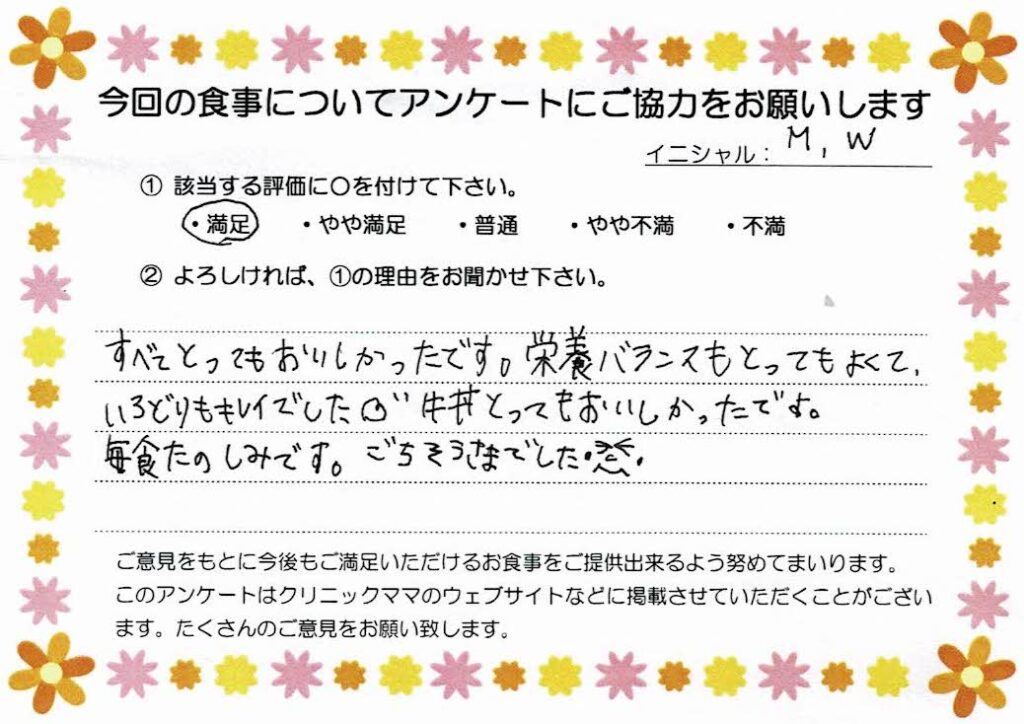 今回の食事についてアンケートにご協力をお願いします
イニシャル： M, W
① 該当する評価に〇を付けて下さい。
・満足 ・やや満足 ・普通 ・やや不満 ・不満
② よろしければ、①の理由をお聞かせ下さい。
すべてとってもおいしかったです。栄養バランスもとってもよくて、
いろどりもキレイでした 牛丼とってもおいしかったです。
毎食たのしみです。ごちそうさまでした
ご意見をもとに今後もご満足いただけるお食事をご提供出来るよう努めてまいります。
このアンケートはクリニックママのウェブサイトなどに掲載させていただくことがござい
ます。たくさんのご意見をお願い致します。